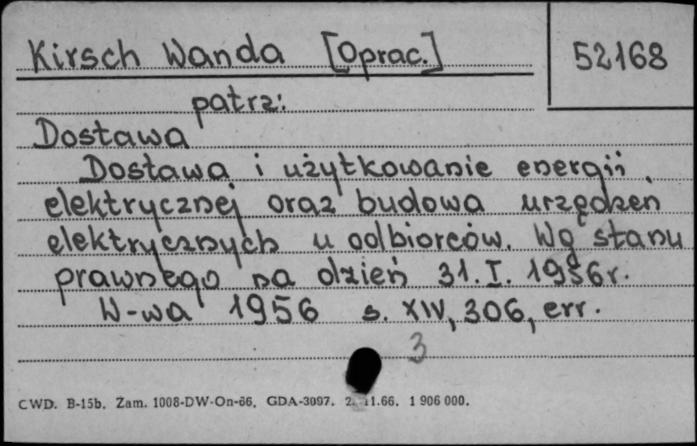 Kirsch Wanda [Oprac.]
52168
patrz:
Dostawa
Dostawa i użytkowanie energii
elektrycznej oraz budowa urządzeń
elektrycznych u odbiorców. Wg stanu
prawnego na dzień 31.I. 1956r.
W-wa 1956 s. XIV, 306, err.
3
CWD. B-15b. Zam. 1008-DW-On-66. GDA-3097. 11.66. 1 906 000.